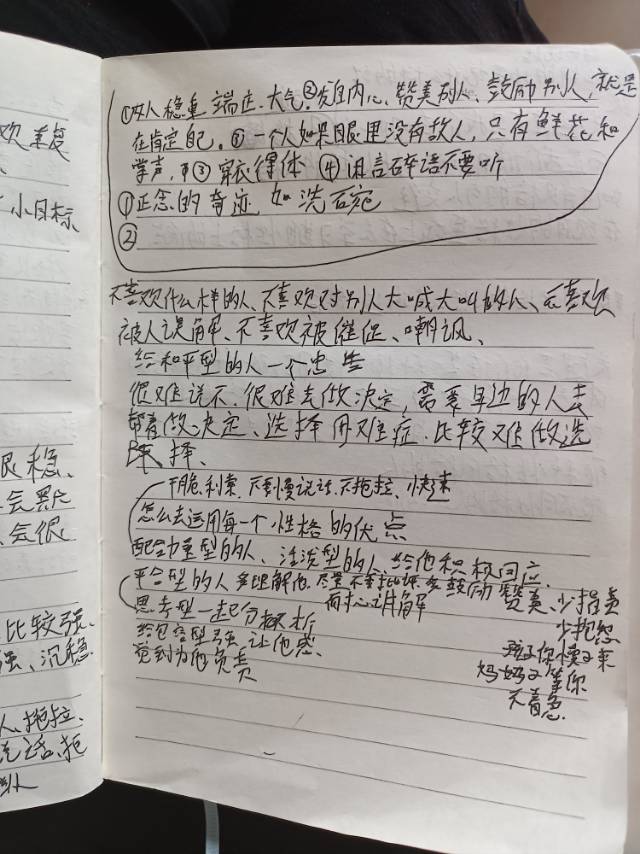 欢重复
小目标
很稳、
会黑
会很
比较强、
强、沉稳
人、拖拉、
说话、拒
①女人稳重 端庄、大气②发自内心、赞美别人、鼓励别人、就是
在肯定自己。⑤一个人如果眼里没有敌人,只有鲜花和
掌声,③穿衣得体 ④闲言碎语不要听
①正念的奇迹 如洗碗
②
不喜欢什么样的人、不喜欢对别人大喊大叫的人、不喜欢
被人误解、不喜欢被催促、嘲讽、
给和平型的人一个忠告
很难说不、很难去做决定,需要身边的人去
帮着做决定、选择困难症、比较难做选
择、
干脆利索、不要慢说话、不拖拉、快起来
怎么去运用每一个性格的优点
配合力量型的人、活泼型的人给他积极回应
平和型的人 多理解他、尽量不要批评、多鼓励 赞美、少指责
少抱怨
思考型一起分析 耐心讲解
给 型 强 让他感
觉到为他负责
孩子你慢下来
妈妈 等你
不着急